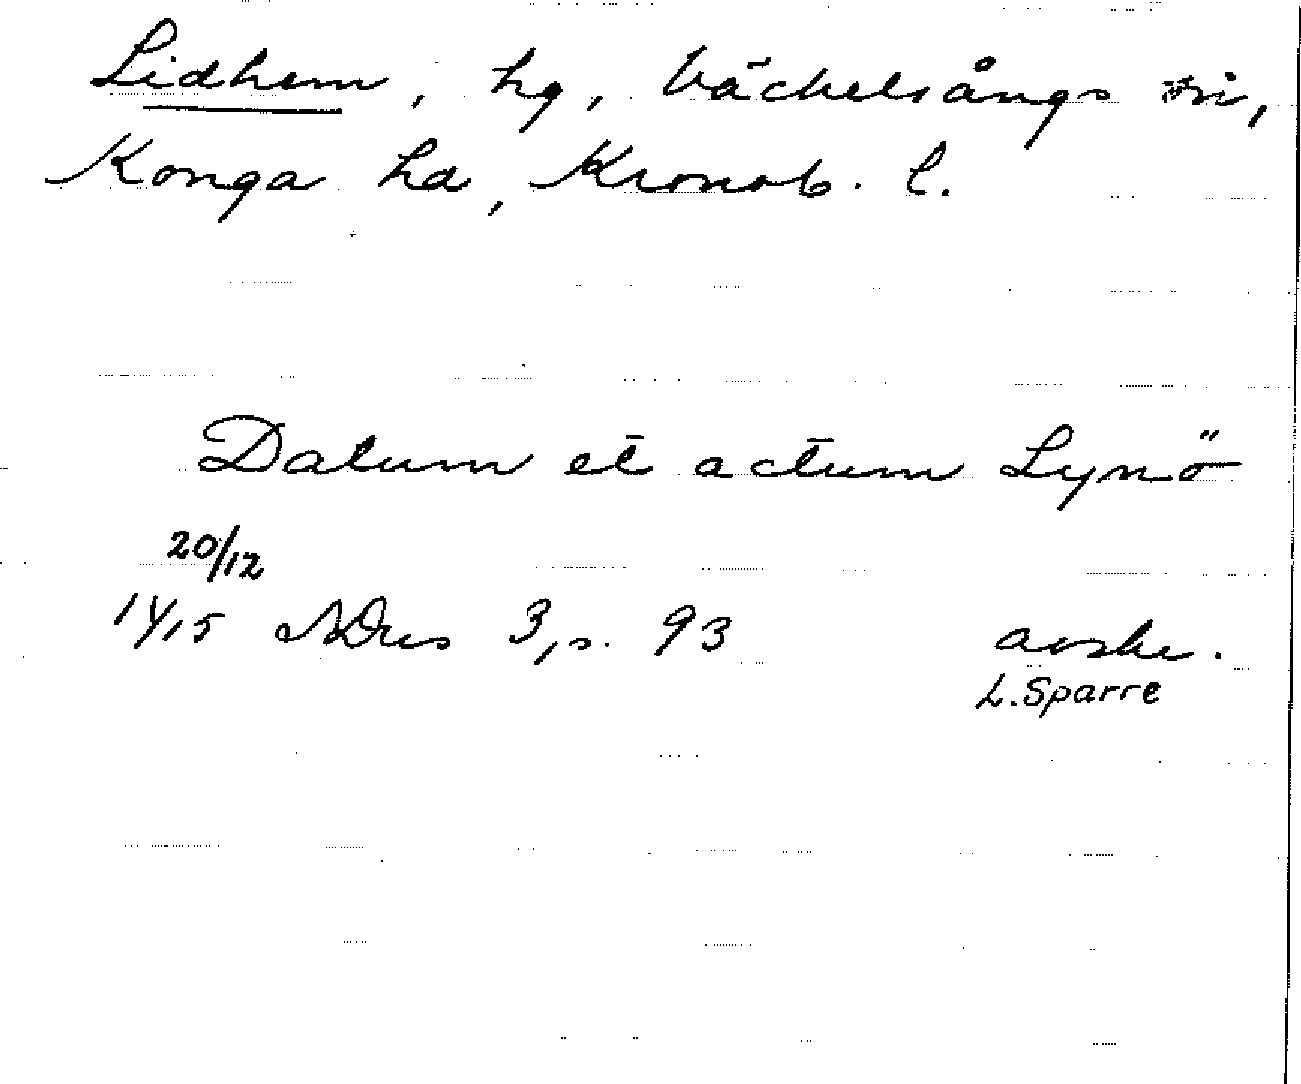 Lidhem, hg, Väckelsångs sn,
Konga hd, Kronob. l.
Datum et actum Lynö
20/12
1415 ADus 3, s. 93 avskr.
L. Sparre